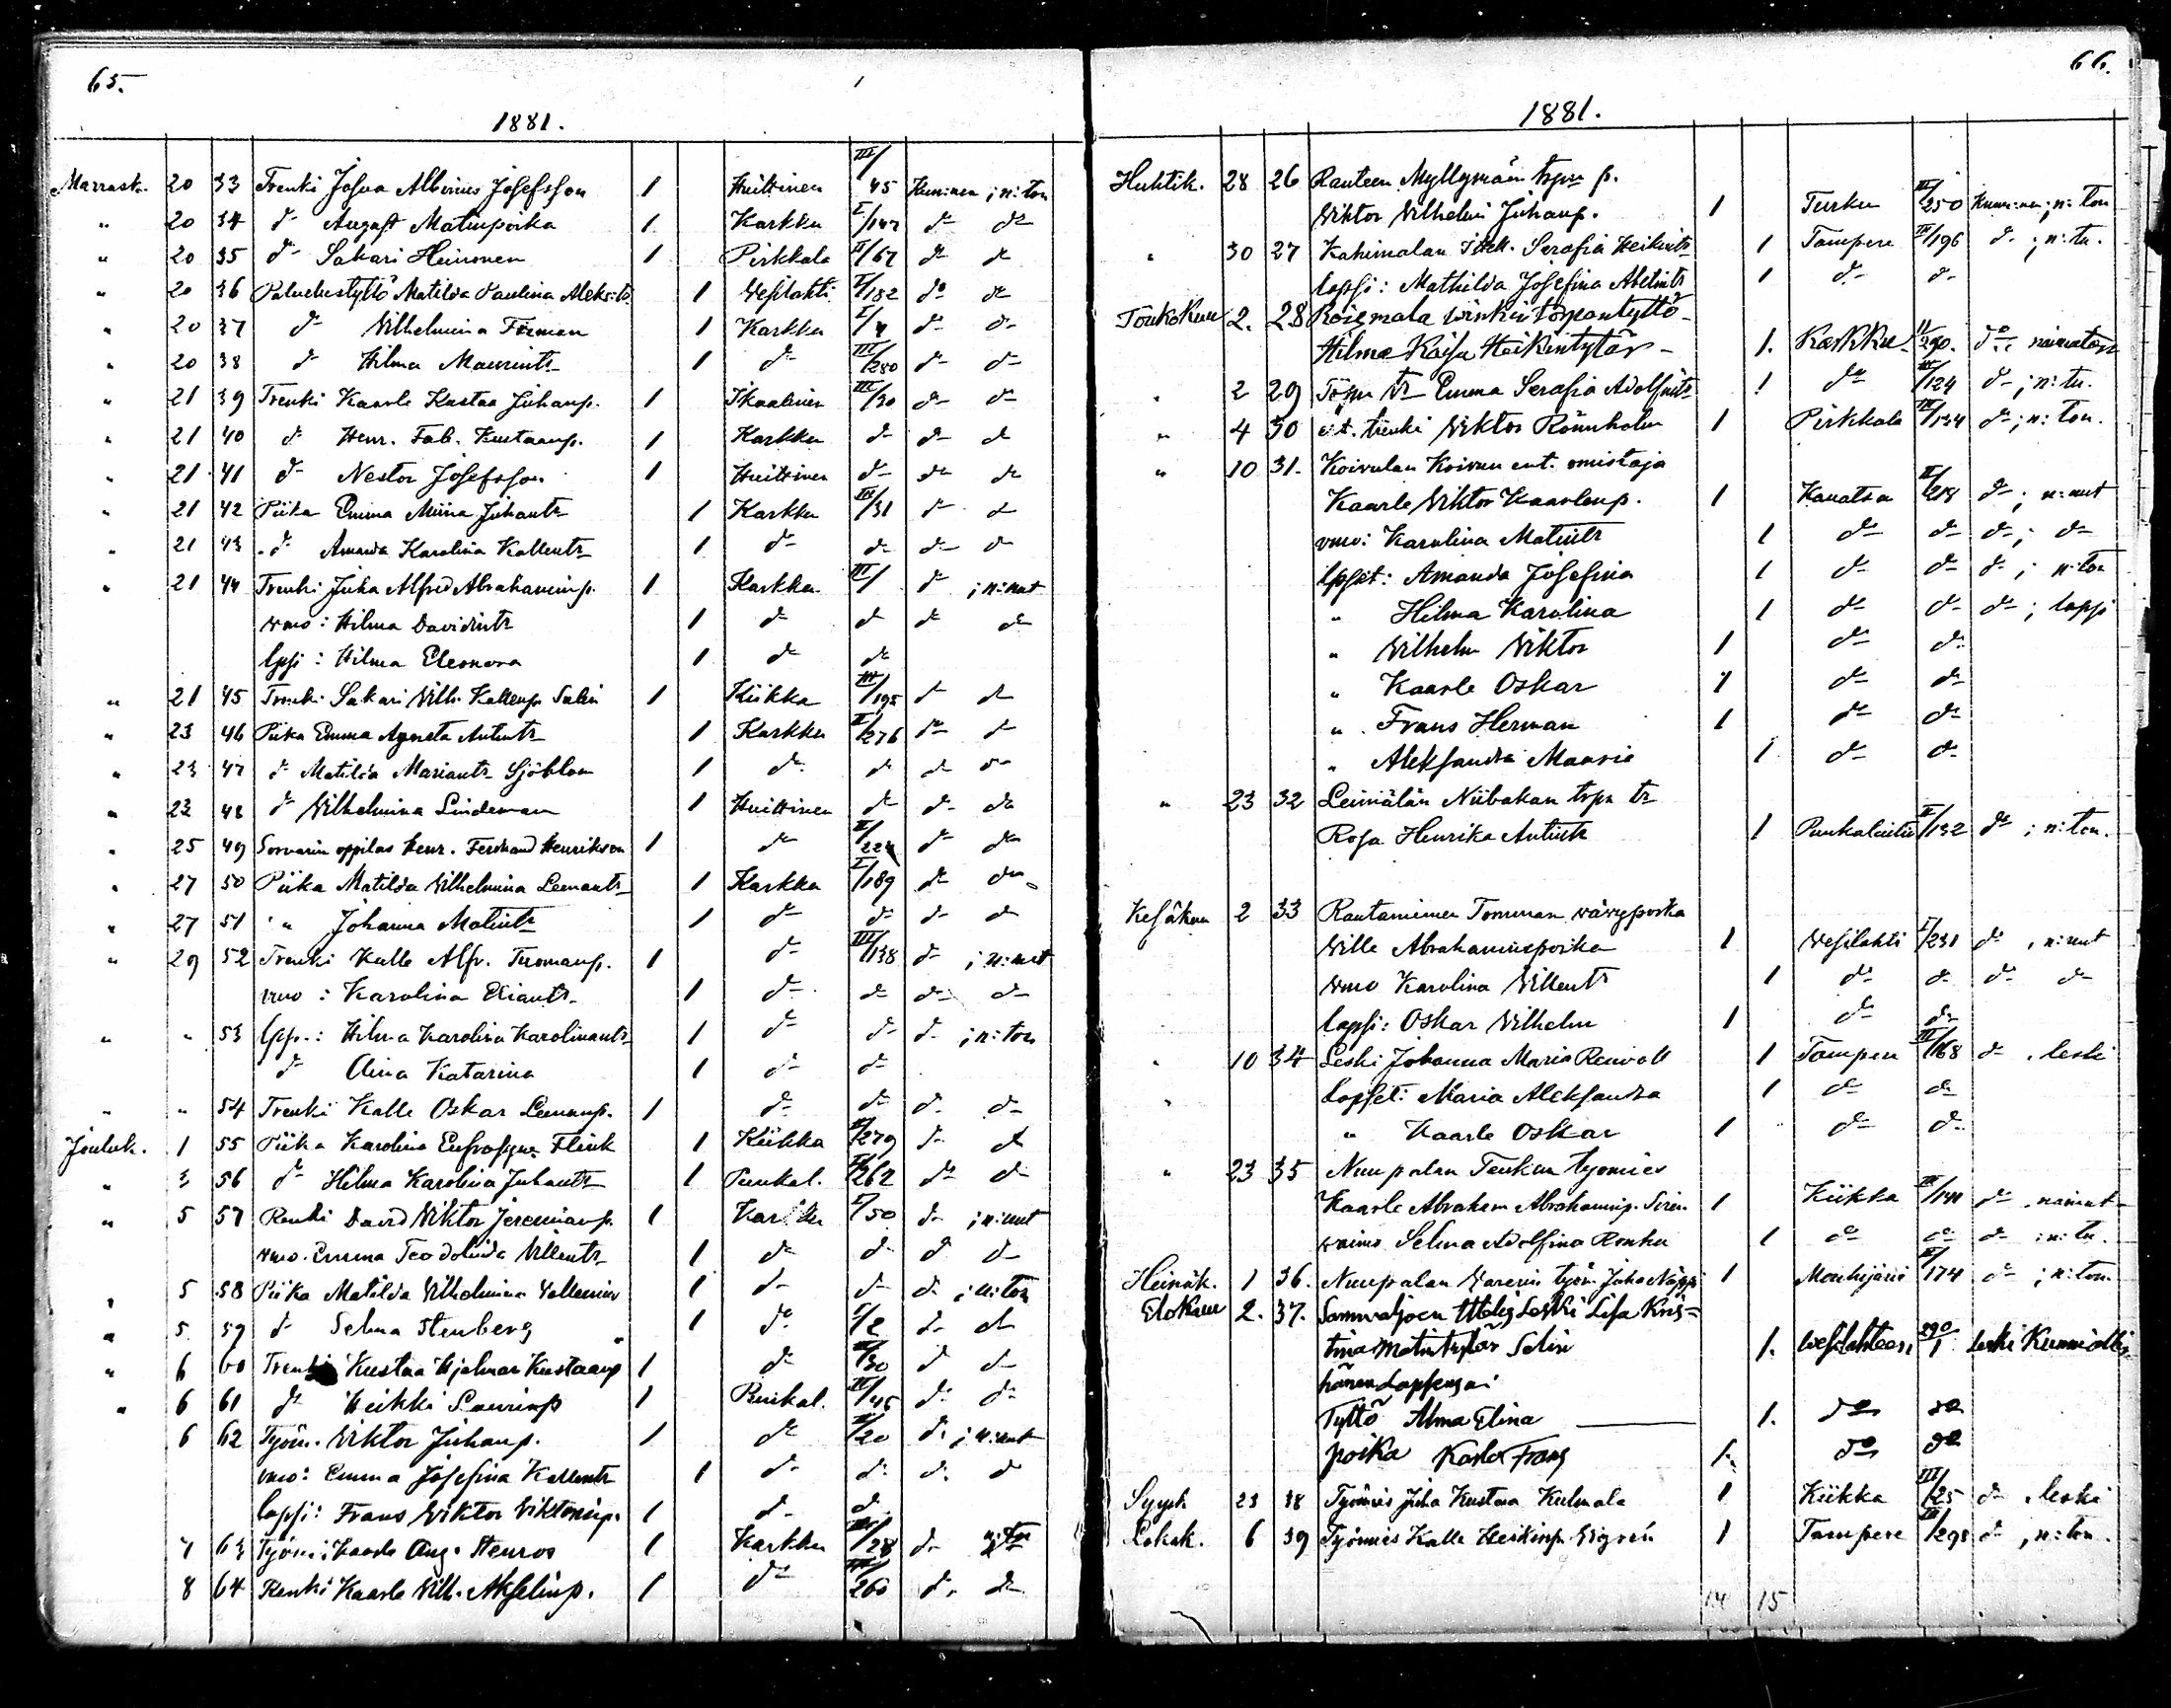 65.
1881.
Marrask. 20 33 Trenki Josua Albinus Josefsson 1 Huittinen III/45 Kunnian ; n:ton
" 20 34 d:o August Matinpoika 1 Karkku I/147 d:o d:o
" 20 35 d:o Sakari Heinonen 1 Pirkkala II/67 d:o d:o
" 20 36 Palvelustyttö Matilda Paulina Aleks:tr 1 Wesilahti I/182 d:o d:o
" 20 37 d:o Wilhelmina Firman 1 Karkku I/4 d:o d:o
" 20 38 d:o Hilma Maurintr 1 d:o III/280 d:o d:o
" 21 39 Trenki Kaarle Kustaa Juhanp. 1 Ikaalinen III/30 d:o d:o
" 21 40 d:o Henr. Fab. Kustaanp. 1 Karkku d:o d:o d:o
" 21 41 d:o Nestor Josefsson 1 Huittinen d:o d:o d:o
" 21 42 Piika Emma Miina Juhantr 1 Karkku III/31 d:o d:o
" 21 43 d:o Amanda Karolina Kallentr 1 d:o d:o d:o d:o
" 21 44 Trenki Juha Alfred Abrahaminp. 1 Karkku III/ d:o ; n:nut
wmo: Hilma Davidintr 1 d:o d:o d:o d:o
lpsi: Hilma Eleonora 1 d:o d:o
" 21 45 Trenki Sakari Wilh. Kallenp. Salin 1 Kiikka III/195 d:o d:o
" 23 46 Piika Emma Agneta Antintr 1 Karkku II/276 d:o d:o
" 23 47 d:o Matilda Mariantr Sjöblom 1 d:o d:o d:o d:o
" 23 48 d:o Wilhelmina Lindeman 1 Huittinen d:o d:o d:o
" 25 49 Sorvarin oppilas Henr. Ferdinand Henrikson 1 d:o II/224 d:o d:o
" 27 50 Piika Matilda Wilhelmina Leenantr 1 Karkku I/189 d:o d:o
" 27 51 " Johanna Matintr 1 d:o d:o d:o d:o
" 29 52 Trenki Kalle Alfr. Tuomanp. 1 d:o III/138 d:o ; n:nut
wmo: Karolina Eliantr 1 d:o d:o d:o d:o
" " 53 lps.: Hilma Karolina Karolinantr 1 d:o d:o d:o ; n:ton
d:o Aina Katarina 1 d:o d:o
" " 54 Trenki Kalle Oskar Leenanp. 1 d:o d:o d:o d:o
Jouluk. 1 55 Piika Karolina Eufrosyna Flink 1 Kiikka II/279 d:o d:o
" 3 56 d:o Hilma Karolina Juhantr 1 Punkal. II/262 d:o d:o
" 5 57 Renki David Wiktor Jeremianp. 1 Karkku I/50 d:o ; n:nut
wmo. Emma Teodolinda Willentr 1 d:o d:o d:o d:o
" 5 58 Piika Matilda Wilhelmina 1 d:o d:o d:o ; n:ton
" 5 59 d:o Selma Stenberg 1 d:o I/2 d:o d:o
" 6 60 Trenki Kustaa Hjalmar Kustaanp 1 d:o II/30 d:o d:o
" 6 61 d:o Heikki Laurinp 1 Punkal. II/45 d:o d:o
6 62 Työm. Wiktor Juhanp. 1 d:o II/20 d:o ; n:nut
wmo: Emma Josefina Kallentr 1 d:o d:o d:o d:o
lapsi: Frans Wiktor Wiktorinp. 1 d:o d:o
7 63 Työm: Kaarle Aug. Stenros 1 Karkku III/28 d:o n:ton
8 64 Renki Kaarle Wilh. Akselinp. 1 d:o III/260 d:o d:o
66.
1881.
Huhtik. 28 26 Rauteen Myllymäen torpn p.
Wiktor Wilhelm Juhanp. 1 Turku III/250 Kunnian ; n:ton
" 30 27 Kahimalan Itsell. Serafia Heikintr 1 Tampere III/196 d:o ; n:tn.
lapsi: Mathilda Josefina Abelintr 1 d:o d:o
Toukokuu 2. 28 Roismala Winkin torpantyttö
Hilma Kaisa Heikintytär 1. Karkku II/290. d:o: naimatoin
" 2 29 Torpn tr Emma Serafia Adolfintr 1 d:o III/124 d:o ; n:tn.
" 4 30 trenki Wiktor Rönnholm 1 Pirkkala III/134 d:o ; n:ton.
" 10 31. Koivulan Koivun ent. omistaja
Kaarle Wiktor Kaarlenp. 1 Kauatsa II/218 d:o ; n:nut
vmo: Karolina Matintr 1 d:o d:o d:o ; d:o
lpset: Amanda Josefina 1 d:o d:o d:o ; n:ton
" Hilma Karolina 1 d:o d:o d:o ; lapsi
" Wilhelm Wiktor 1 d:o d:o
" Kaarle Oskar 1 d:o d:o
" Frans Herman 1 d:o d:o
" Aleksandra Maaria 1 d:o d:o
" 23 32 Leiniälän Niibakan torpn tr
Rosa Henrika Antintr 1 Punkalaitio II/132 d:o ; n:ton.
Kesäkuu 2 33 Rautanimen Tomman wävypoika
Wille Abrahaminpoika 1 Wesilahti I/231 d:o , n:nut
wmo Karolina Willentr 1 d:o d:o d:o d:o
lapsi: Oskar Wilhelm 1 d:o d:o
" 10 34 Leski Johanna Maria Renvall 1 Tampere III/168 d:o , leski
" lapset: Maria Aleksandra 1 d:o d:o
" Kaarle Oskar 1 d:o d:o
" 23 35 Nuupalan Tenkun työmies
Kaarle Abraham Abrahaminp. Siren 1 Kiikka III/141 d:o , naimut
waimo Selma Adolfina Ronku 1 d:o d:o d:o : n:tn.
Heinäk. 1 36. Nuupalan Warenin työm. Juho Näppi 1 Mouhijärvi II/174 d:o ; n:ton.
Elokuu 2. 37. Sammaljoen Uteliq Leski Lisa Kris=
tina Matintytär Selin 1. Wesilahteen 290/1 leski Kunniallis.
hänen Lapsensa:
Tyttö Alma Elina 1. d:o d:o
poika Karle Frans 1. d:o d:o
Syysk 23 38 Työmies Juha Kustaa Kulmala 1 Kiikka III/25 d:o , leski
Lokak. 6 39 Työmies Kalle Heikinp. Wigren 1 Tampere III/295 d:o , n:ton.
14 15